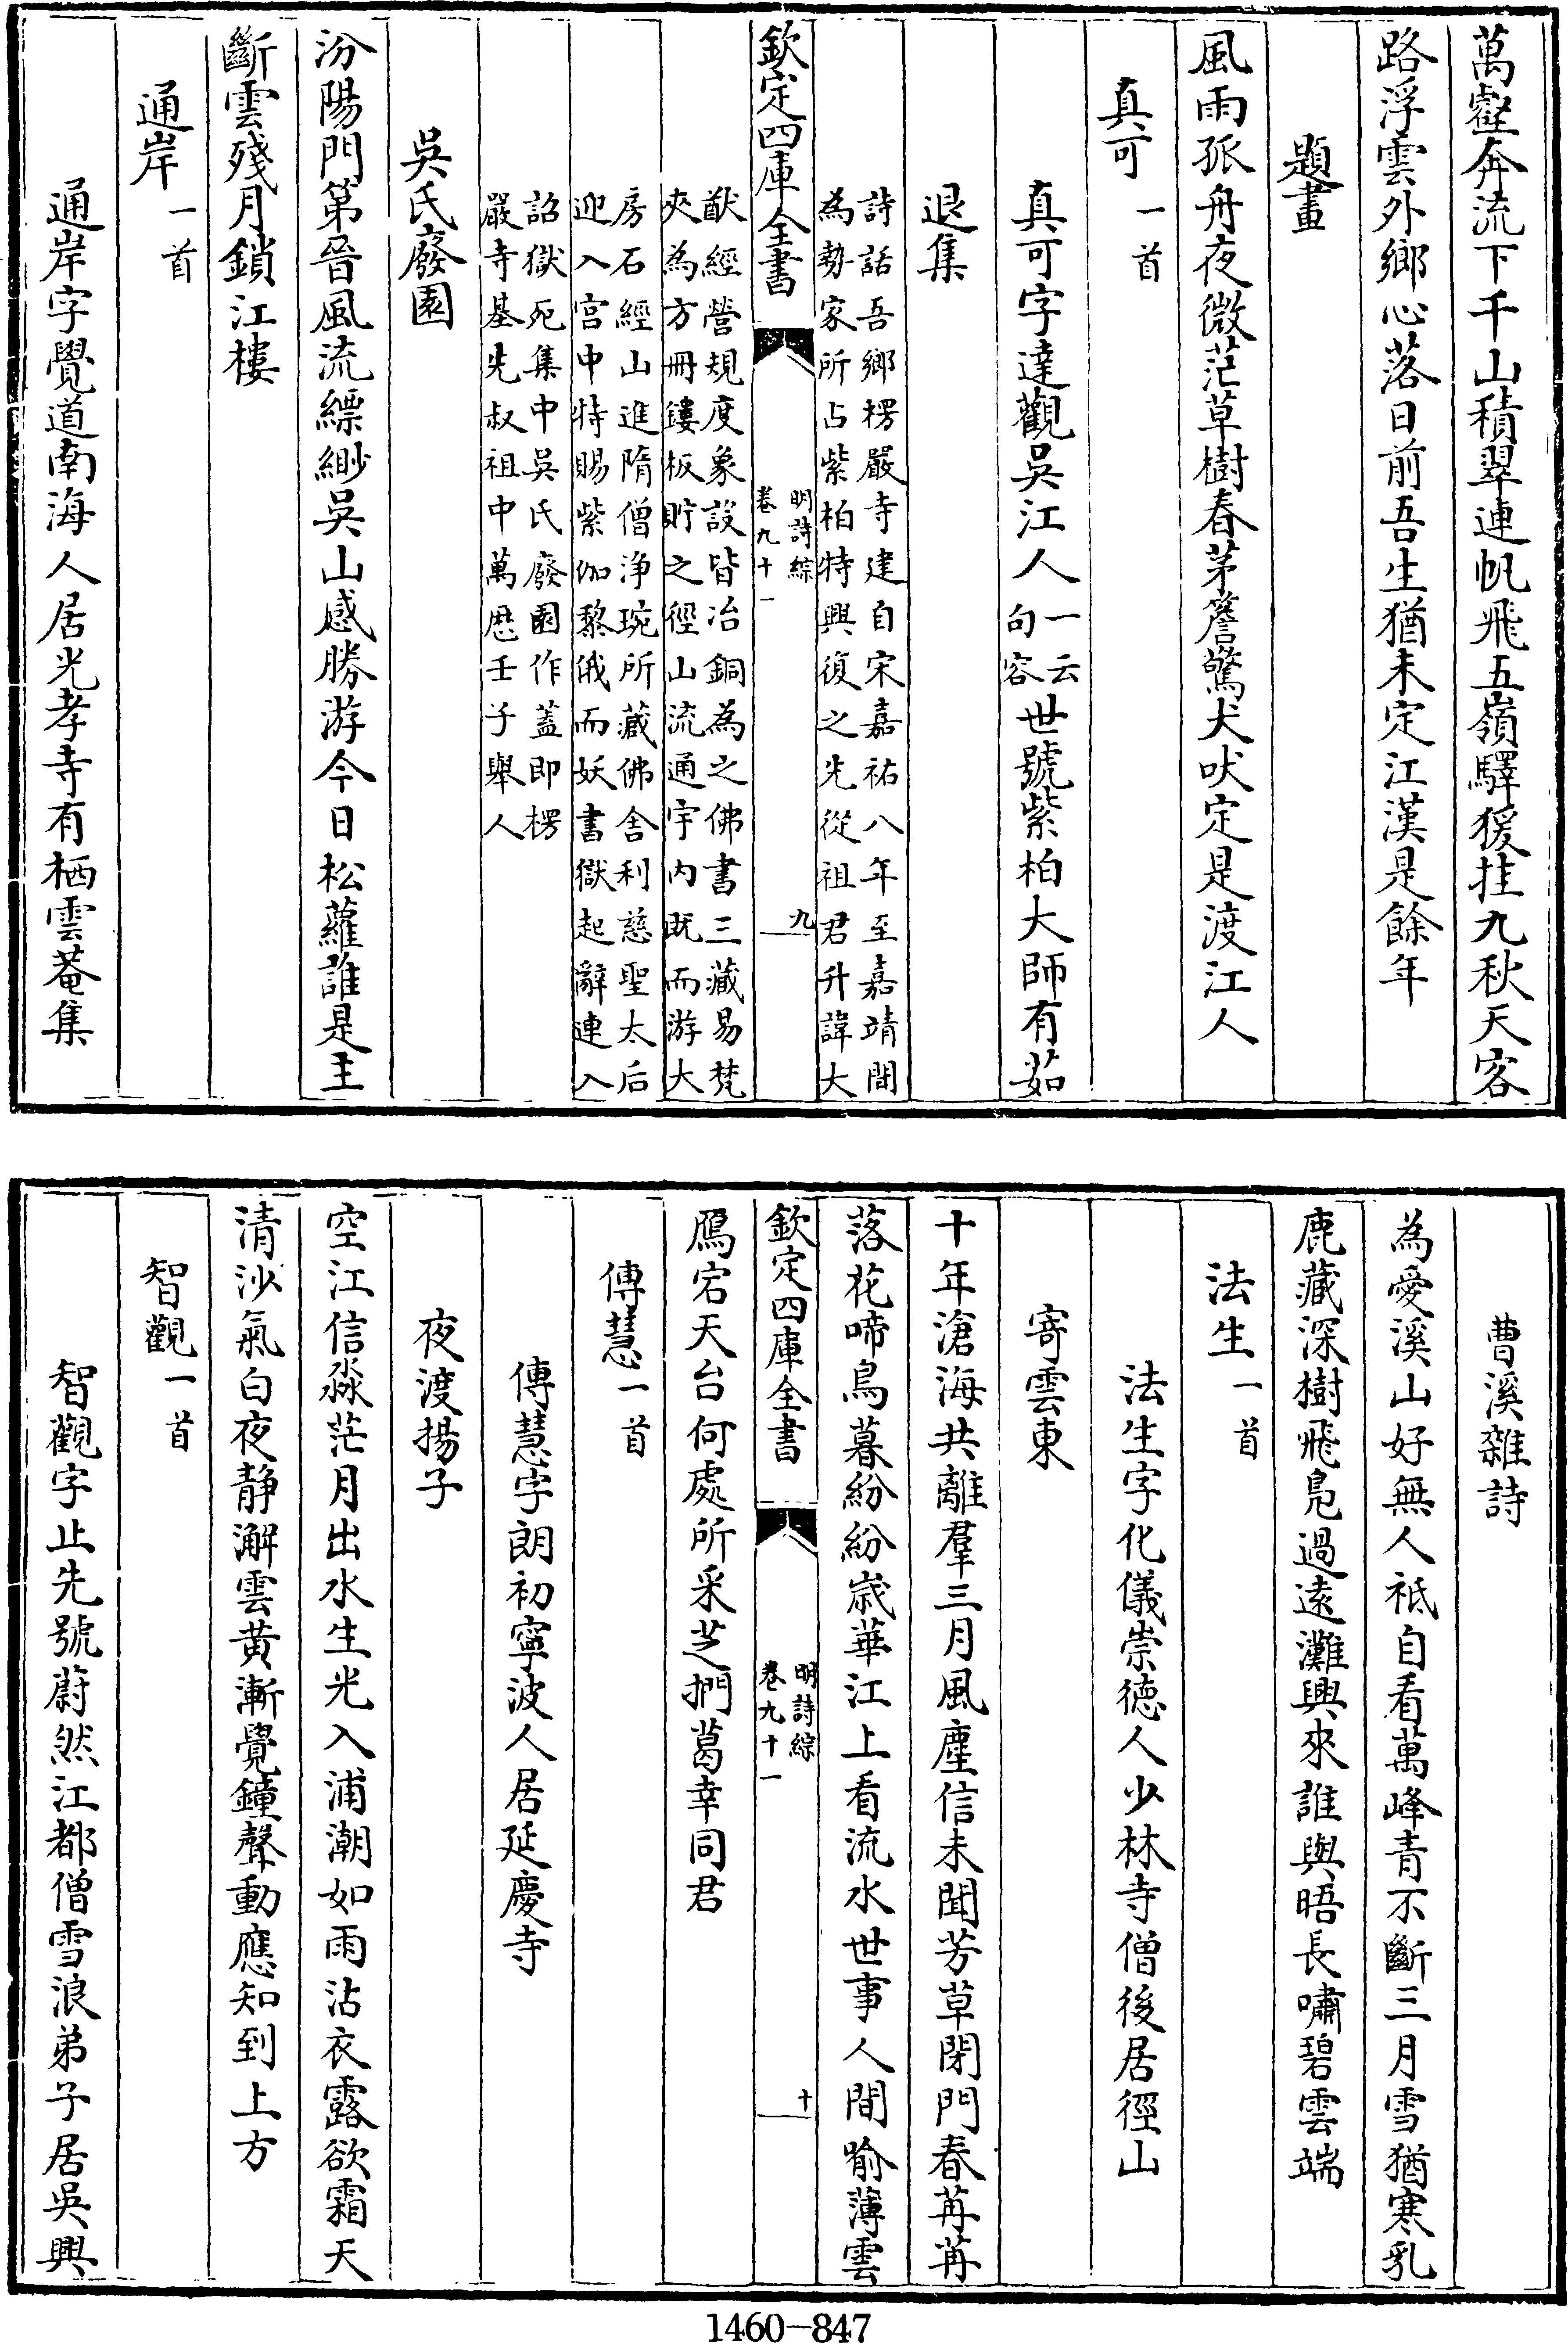 萬壑奔流下千山積翠連帆飛五嶺驛猨挂九秋天客
路浮雲外鄉心落日前吾生猶未定江漢是餘年
題畫
風雨孤舟夜微茫草樹春茅簷驚犬吠定是渡江人
真可一首
真可字達觀吳江人一云句容世號紫柏大師有茹
退集
詩話吾鄉楞嚴寺建自宋嘉祐八年至嘉靖間
為勢家所占紫柏特興復之先從祖君升諱大
欽定四庫全書
明詩綜
卷九十一
九
猷經營規度象設皆冶銅為之佛書三藏易梵
夾為方冊鏤板貯之徑山流通宇内既而游大
房石經山進隋僧浄琬所藏佛舍利慈聖太后
迎入宫中特賜紫伽黎俄而妖書獄起辭連入
詔獄死集中吳氏廢園作蓋即楞
嚴寺基先叔祖中萬厯壬子舉人
吳氏廢園
汾陽門第晉風流縹緲吳山感勝游今日松蘿誰是主
斷雲殘月鎖江樓
通岸一首
通岸字覺道南海人居光孝寺有栖雲菴集
曹溪雜詩
為愛溪山好無人祗自看萬峰青不斷三月雪猶寒乳
鹿藏深樹飛鳬過遠灘興來誰與晤長嘯碧雲端
法生一首
法生字化儀崇德人少林寺僧後居徑山
寄雲東
十年滄海共離羣三月風塵信未聞芳草閉門春苒苒
落花啼鳥暮紛紛歳華江上看流水世事人間喻薄雲
欽定四庫全書
明詩綜
卷九十一
十
鴈宕天台何處所采芝捫葛幸同君
傳慧一首
傳慧字朗初寧波人居延慶寺
夜渡揚子
空江信淼茫月出水生光入浦潮如雨沾衣露欲霜天
清沙氣白夜静澥雲黄漸覺鐘聲動應知到上方
智觀一首
智觀字止先號蔚然江都僧雪浪弟子居吳興
1460—847